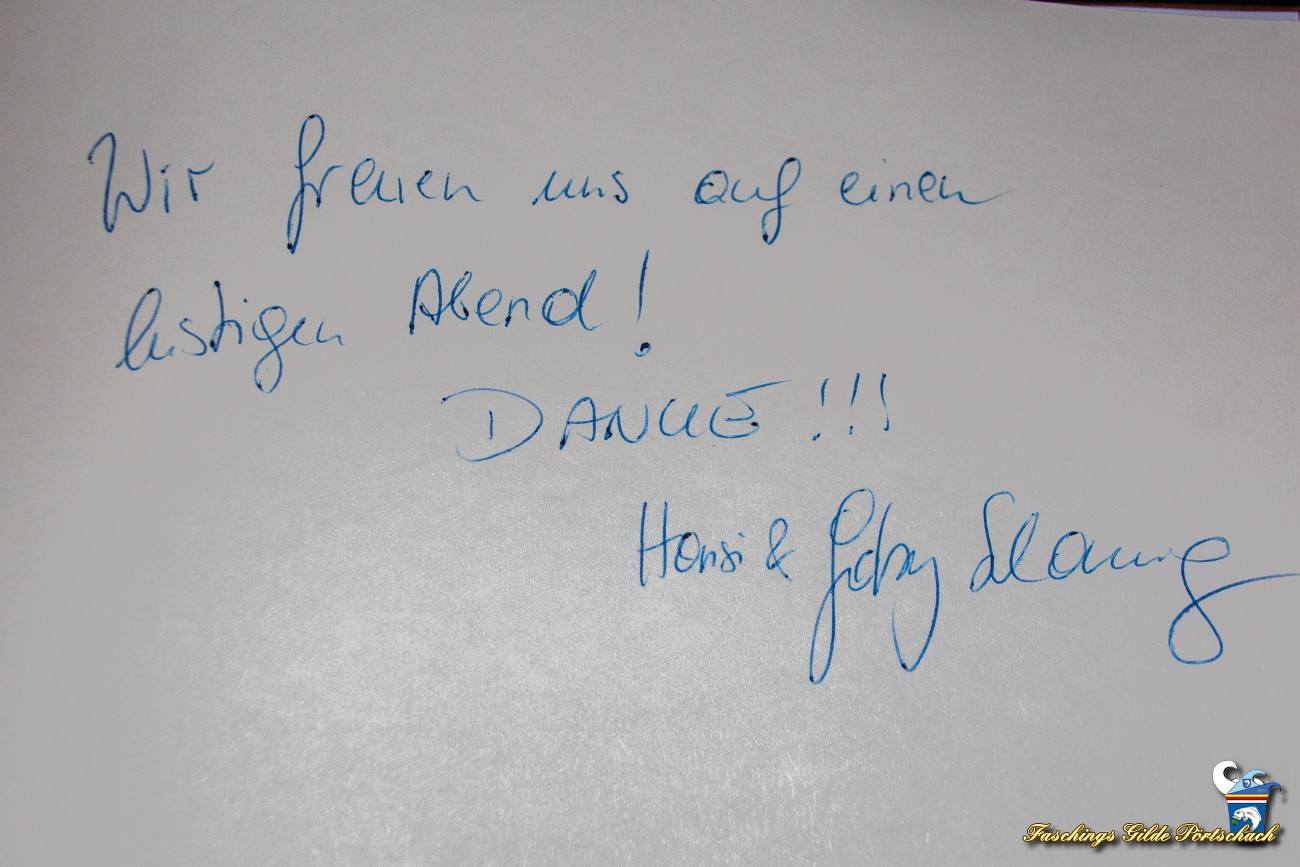 Wir freuen uns auf einen
lustigen Abend!
DANKE!!!
Hansi & Gaby
Faschings Gilde Pörtschach